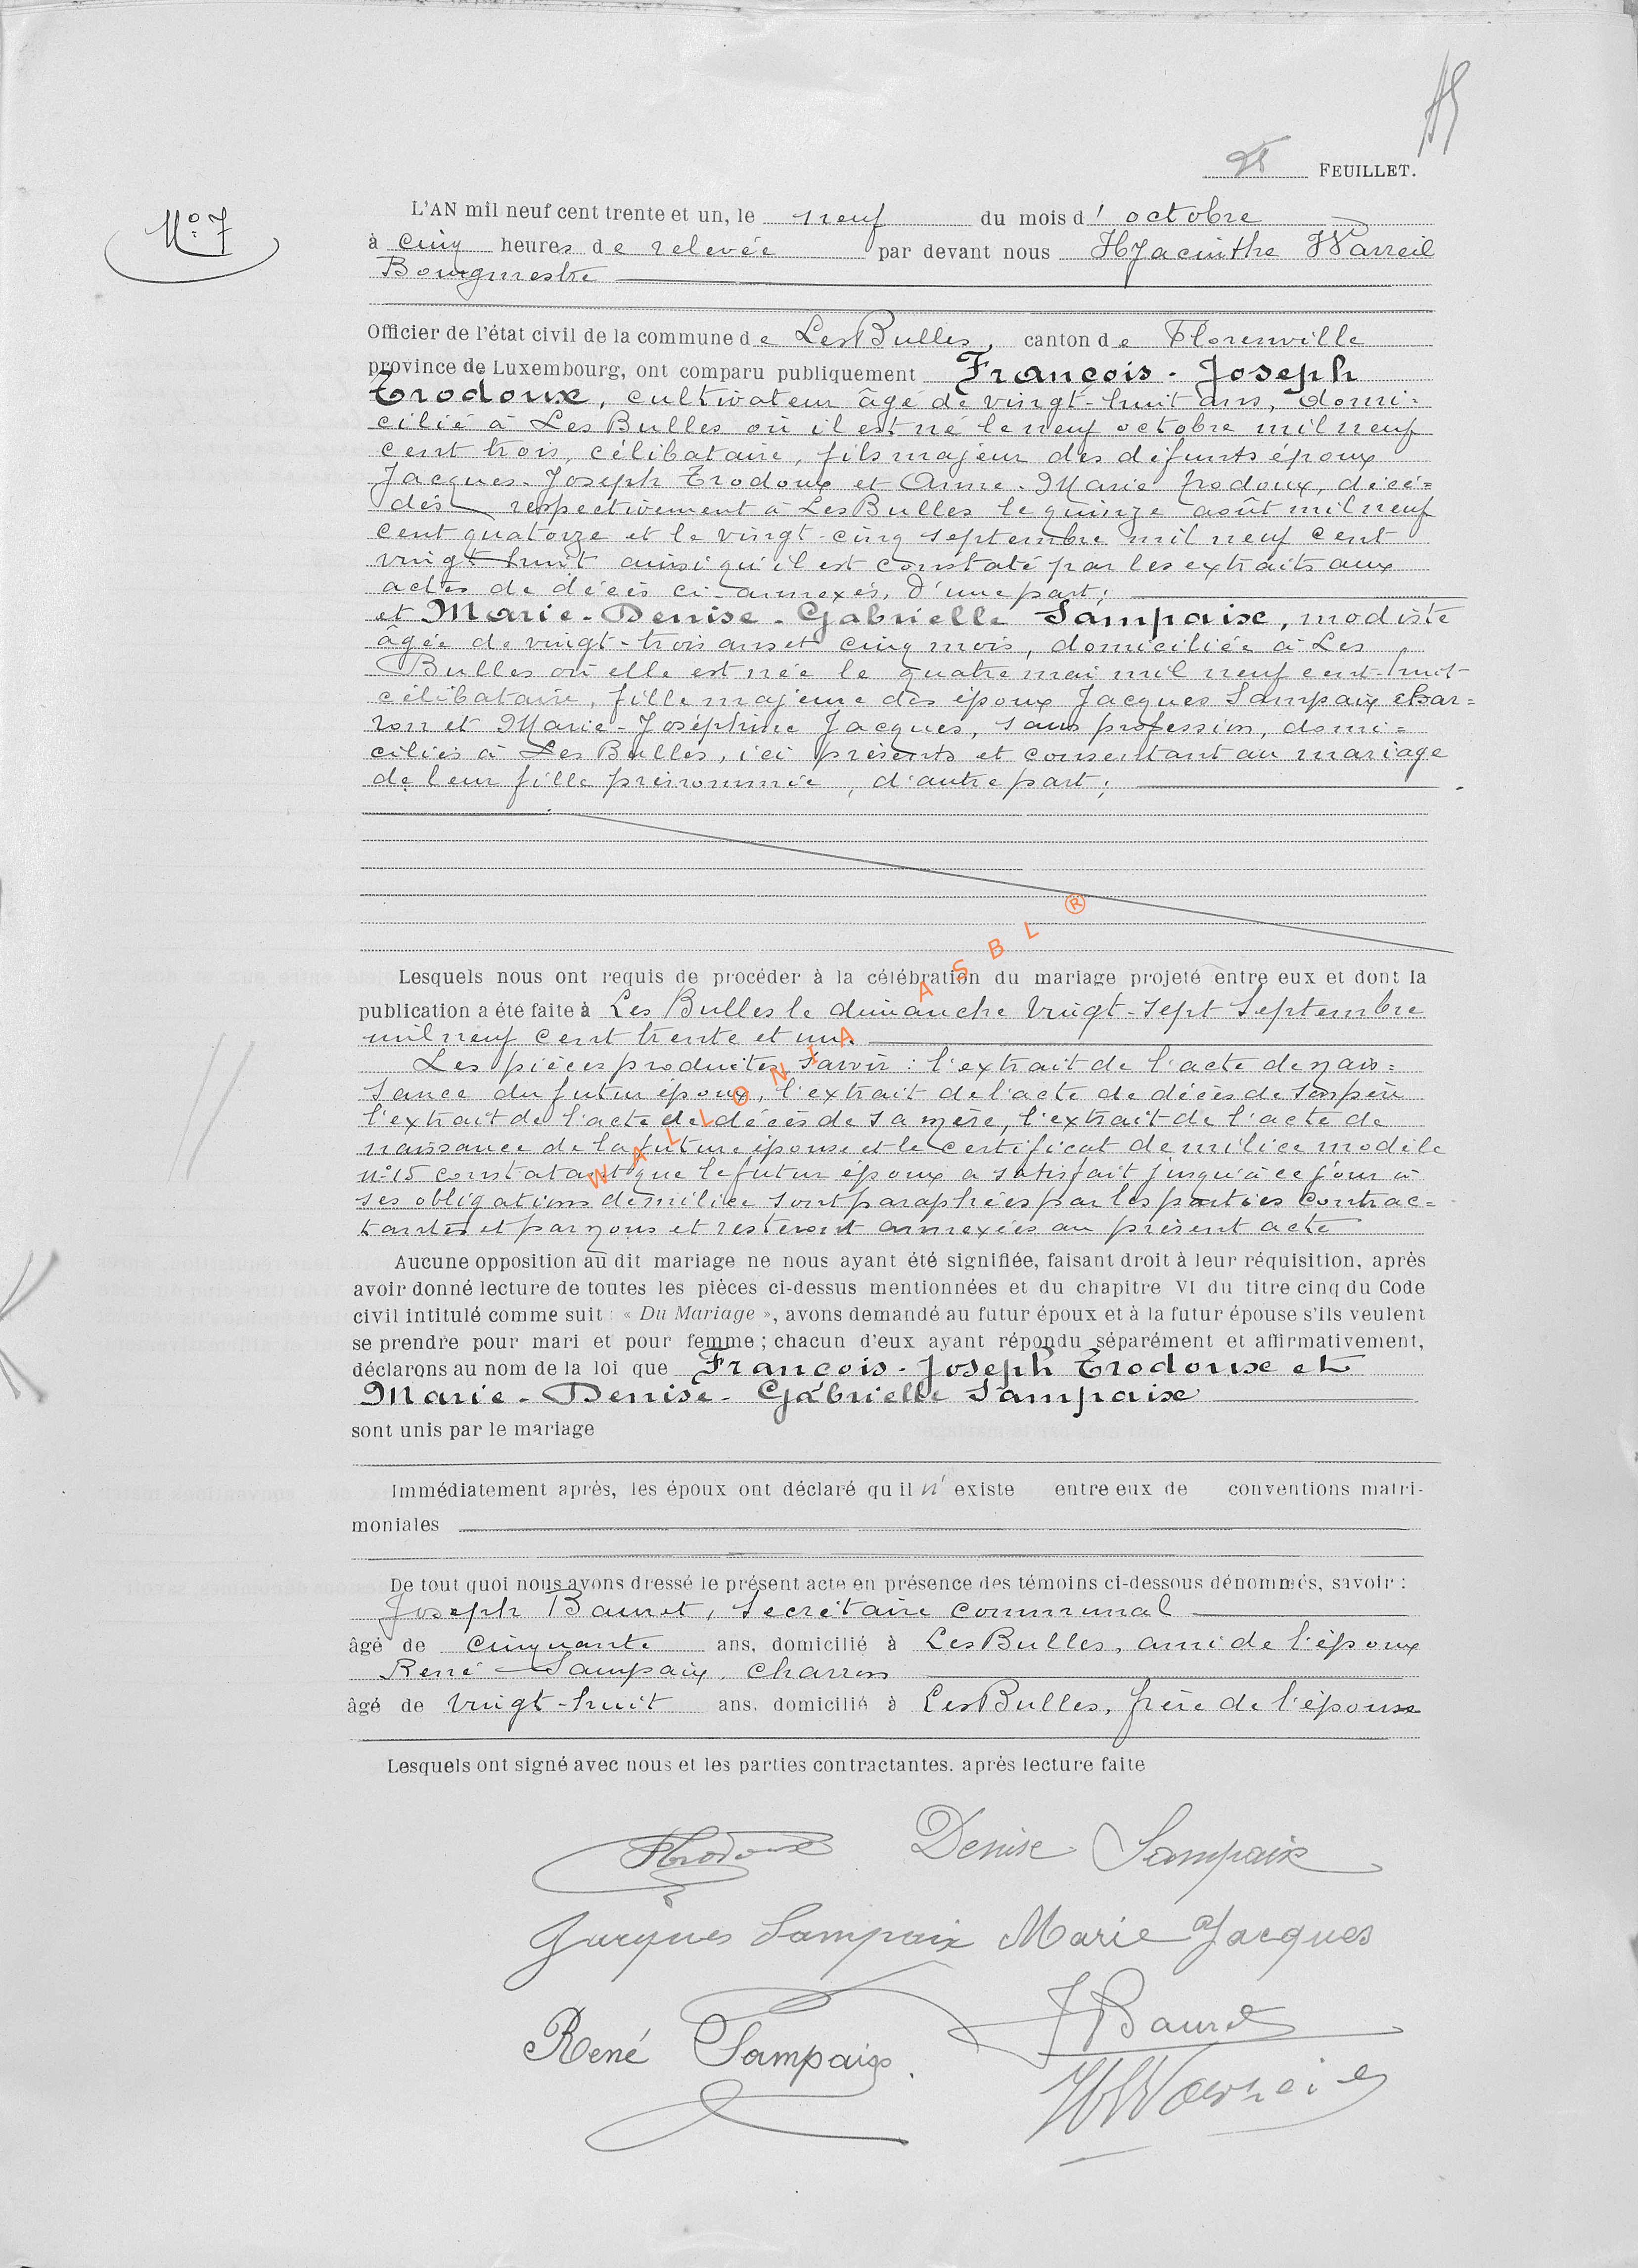 25 FEUILLET.
N° 7
L'AN mil neuf cent trente et un, le neuf du mois d' octobre
à cinq heures de relevée par devant nous Hyacinthe Warreil
Bourgmestre
Officier de l'état civil de la commune de Les Bulles, canton de Florenville
province de Luxembourg, ont comparu publiquement François-Joseph
Trodoux, cultivateur âgé de vingt-huit ans, domi=
cilié à Les Bulles où il est né le neuf octobre mil neuf
cent trois, célibataire, fils majeur des défunts époux
Jacques-Joseph Trodoux et Anne-Marie Trodoux, décé=
dés respectivement à Les Bulles le quinze août mil neuf
cent quatorze et le vingt-cinq septembre mil neuf cent
vingt-huit ainsi qu'il est constaté par les extraits aux
actes de décès ci-annexés, d'une part;
et Marie-Denise-Gabrielle Sampaix, modiste
âgée de vingt-trois ans et cinq mois, domiciliée à Les
Bulles où elle est née le quatre mai mil neuf cent-huit
célibataire, fille majeure des époux Jacques Sampaix char=
ron et Marie-Joséphine Jacques, sans profession, domi=
ciliés à Les Bulles, ici présents et consentant au mariage
de leur fille prénommée, d'autre part;
Lesquels nous ont requis de procéder à la célébration du mariage projeté entre eux et dont la
publication a été faite à Les Bulles le dimanche vingt-sept septembre
mil neuf cent trente et un.
Les pièces produites, savoir: l'extrait de l'acte de nais=
sance du futur époux, l'extrait de l'acte de décès de son père
l'extrait de l'acte de décès de sa mère, l'extrait de l'acte de
naissance de la future épouse et le certificat de milice modèle
n° 15 constatant que le futur époux a satisfait jusqu'à ce jour à
ses obligations de milice sont paraphées par les parties contrac=
tantes et par nous et resteront annexées au présent acte
Aucune opposition au dit mariage ne nous ayant été signifiée, faisant droit à leur réquisition, après
avoir donné lecture de toutes les pièces ci-dessus mentionnées et du chapitre VI du titre cinq du Code
civil intitulé comme suit : « Du Mariage », avons demandé au futur époux et à la futur épouse s'ils veulent
se prendre pour mari et pour femme ; chacun d'eux ayant répondu séparément et affirmativement,
déclarons au nom de la loi que François-Joseph Trodoux et
Marie-Denise-Gabrielle Sampaix
sont unis par le mariage
Immédiatement après, les époux ont déclaré qu il n' existe entre eux de conventions matri-
moniales
De tout quoi nous avons dressé le présent acte en présence des témoins ci-dessous dénommés, savoir :
Joseph Bauret, secrétaire communal
âgé de cinquante ans, domicilié à Les Bulles, ami de l'époux
René Sampaix, charron
âgé de vingt-huit ans, domicilié à Les Bulles, frère de l'épouse
Lesquels ont signé avec nous et les parties contractantes, après lecture faite
Trodoux Denise Sampaix
Jacques Sampaix Marie Jacques
René Sampaix. J Bauret
H Warreil
WALLONIA ASBL ®